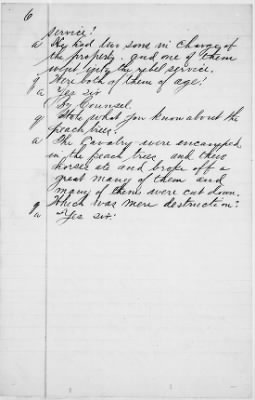 6
service?
a He had two sons in charge of
the property. and one of them
went into the rebel service.
q Were both of them of age?
a Yes sir
By Counsel.
q State what you know about the
peach trees?
a The Cavalry were encamped
in the peach trees and their
horses ate and broke off a
great many of them and
many of them were cut down.
q Which was mere destruction?
a Yes sir.